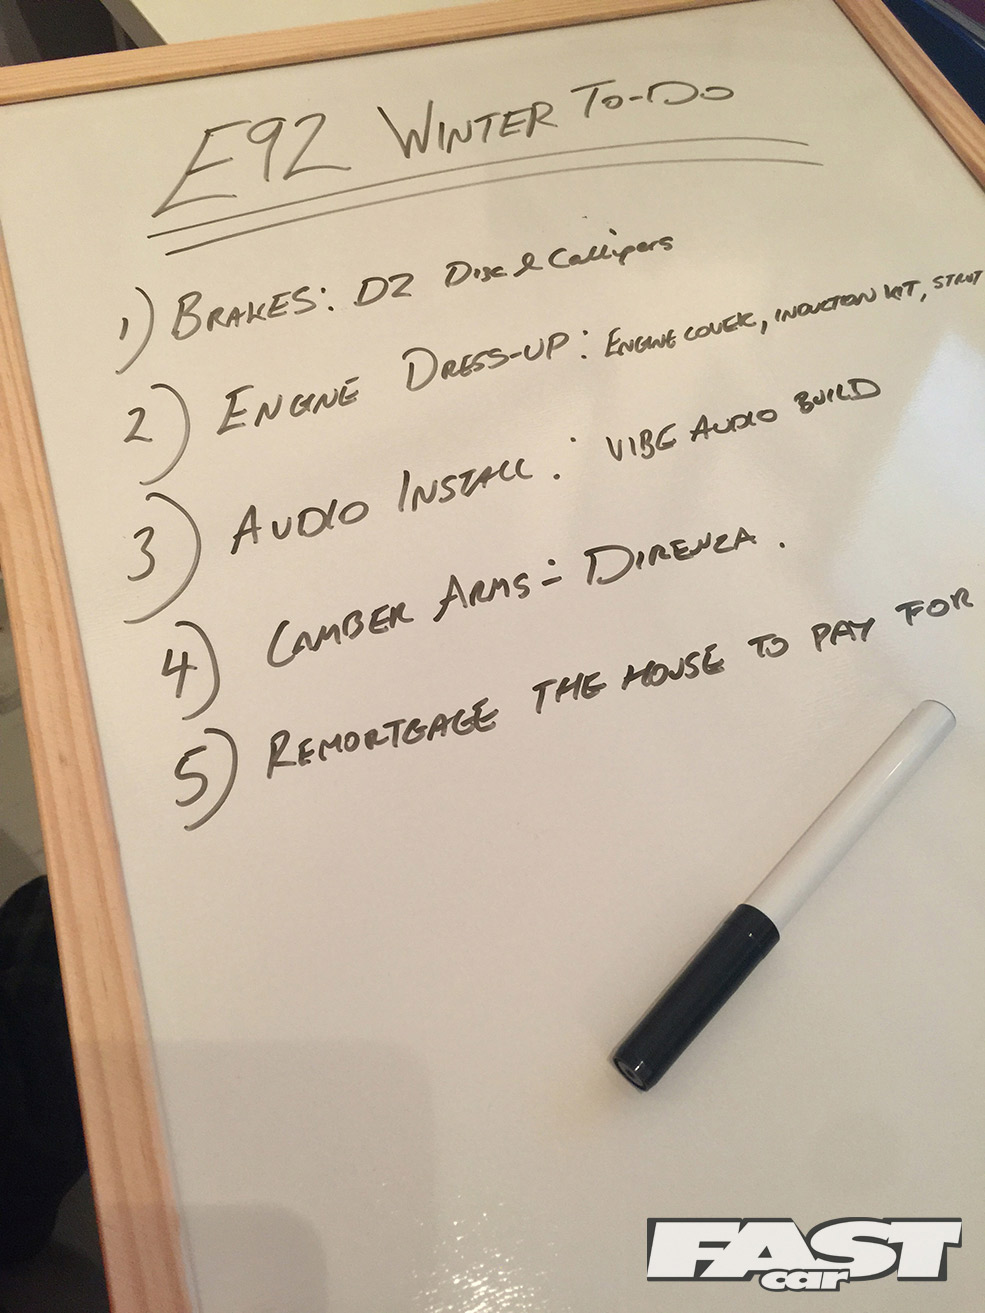 E92 WINTER TO-DO
1) BRAKES: D2 Disc & Callipers
2) ENGINE DRESS-UP: ENGINE COVER, INDUCTION KIT, STRUT
3) AUDIO INSTALL: VIBE AUDIO BUILD
4) CAMBER ARMS: DIRENZA.
5) REMORTGAGE THE HOUSE TO PAY FOR
FAST
car